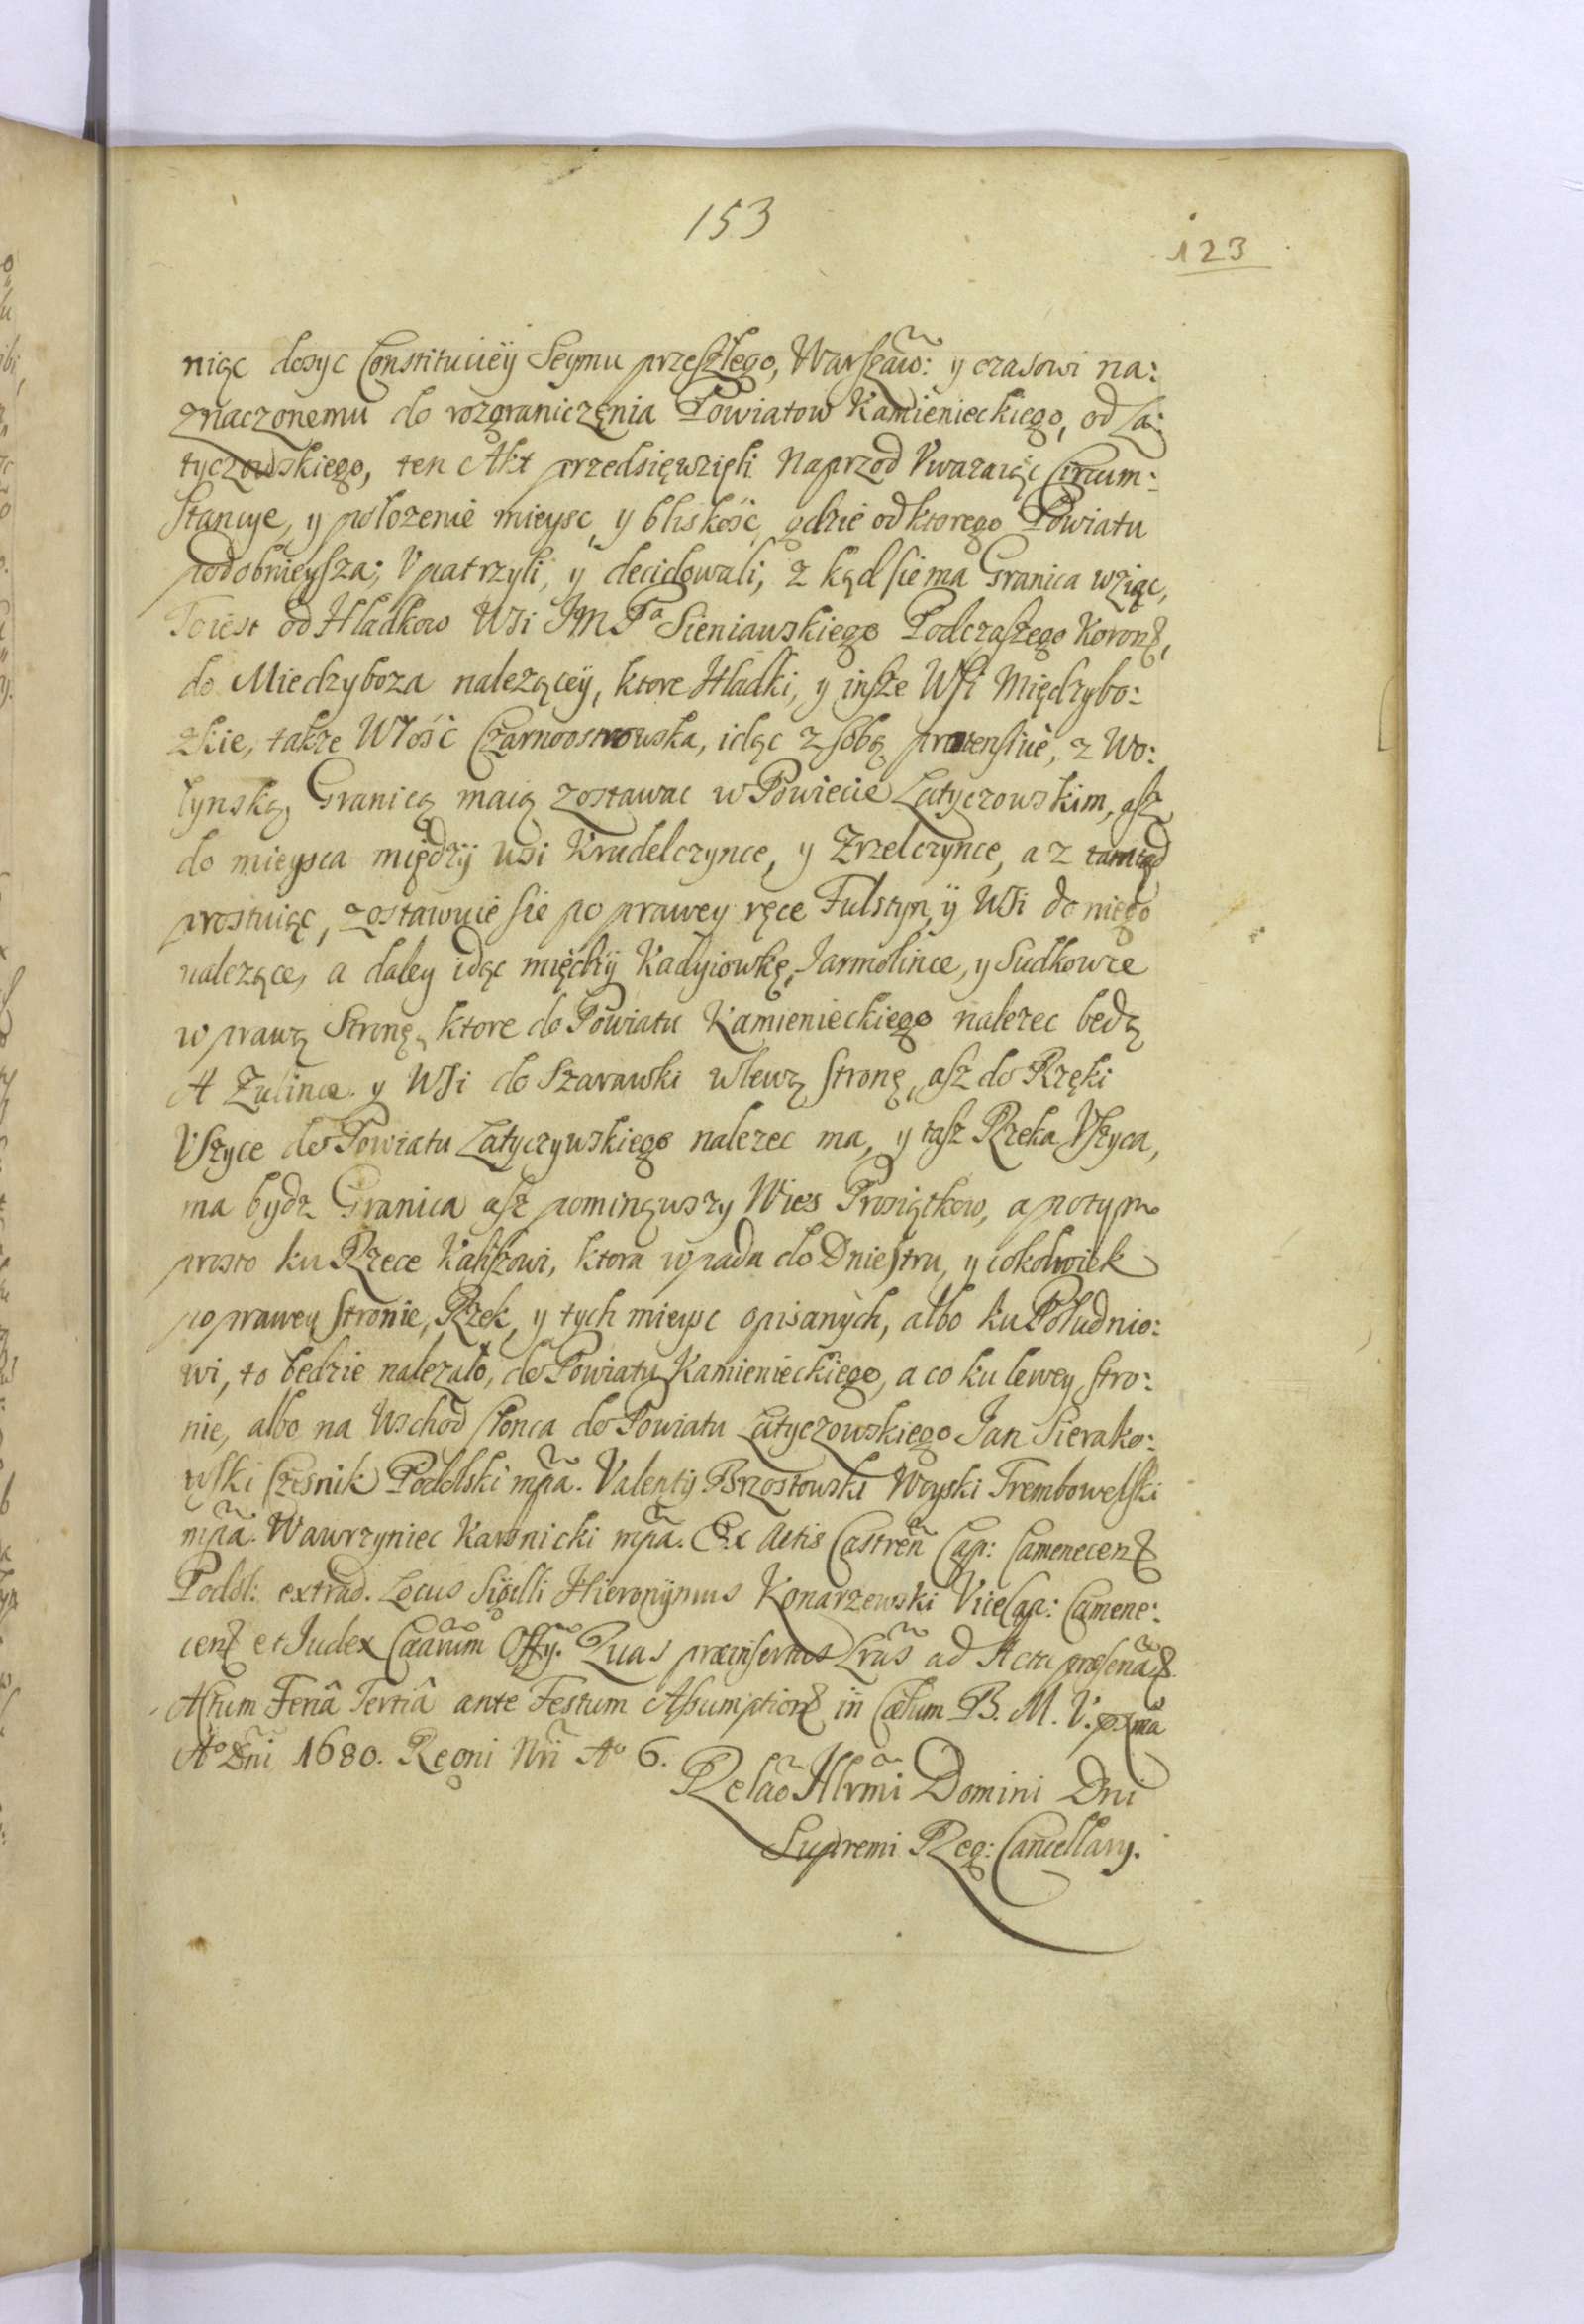 153
123
niąc dosyc Constituciëÿ Seymu przeszłego, Warszaw: y czasowi na:
znaczonemu do rozgraniczęnia Powiatow Kamienieckiego, od La:
tyczowskiego, ten Akt przedsięwzięli. Naprzod Vwazaiąc Circum:
stancye, y położenie mieysc, y bliskość, gdzie od ktorego Powiatu
podobnieysza; Vpatrzyli, y decidowali, z kąd sie ma Granica wziąc,
To iest od Hladkow Wsi JM Pa Sieniawskiego Podczaszego Koron,
do Miedzyboza nalezącëÿ, ktore Hladki, y insze Wsi Międzybo:
zkie, takze Włość Czarnoostrowska, idąc z sobą protensiue, z Wo:
łynską, Granicą maią zostawac w Powiecie Latyczowskim, asz
do mieysca międzÿ wsi Krudelczynce, y Zrzelczynce, a z tamtąd
prostuiąc, zostawuie sie po prawey ręce Fulstyn, ÿ Wsi do niego
nalezące, a daley idąc międzÿ Kadyiowkę, Jarmolince, y Sudkowce
w prawą Stronę, ktore do Powiatu Kamienieckiego nalezec będą
A Zulince y Wsi do Szarawki w lewą stronę, asz do Rzęki
Vszyce do Powiatu Latyczywskiego nalezec ma, y tasz Rzeka Vszyca,
ma bydz Granica asz pominąwszy Wies Prosiątkow, a potym
prosto ku Rzece Kaliszowi, ktora wpada do Dniestru, y cokolwiek
po prawey stronie, Rzek, y tych mieysc opisanych, albo ku Południo:
wi, to będzie nalezało, do Powiatu Kamienieckiego, a co ku lewey stro:
nie, albo na Wschod słonca do Powiatu Latyczowskiego Jan Sierako:
wski Czesnik Podolski mpa. Valenty Brzostowski Woyski Trembowelski
mpa. Wawrzyniec Karsnicki mpa. Ex Actis Castren Cap: Camenecen
Podol: extrad. Locus Sigilli Hieronÿmus Konarzewski ViceCap: Camene:
cen et Judex Caarum Offÿ. Quas præinsertas Lras ad Acta præsena
Actum Feriâ Tertiâ ante Festum Assumption in Cælum B. M. V. pxma
Ao Dni 1680. Regni Nri Ao 6.
Relao Illrmi Domini Dni
Supremi Reg: Cancellary.